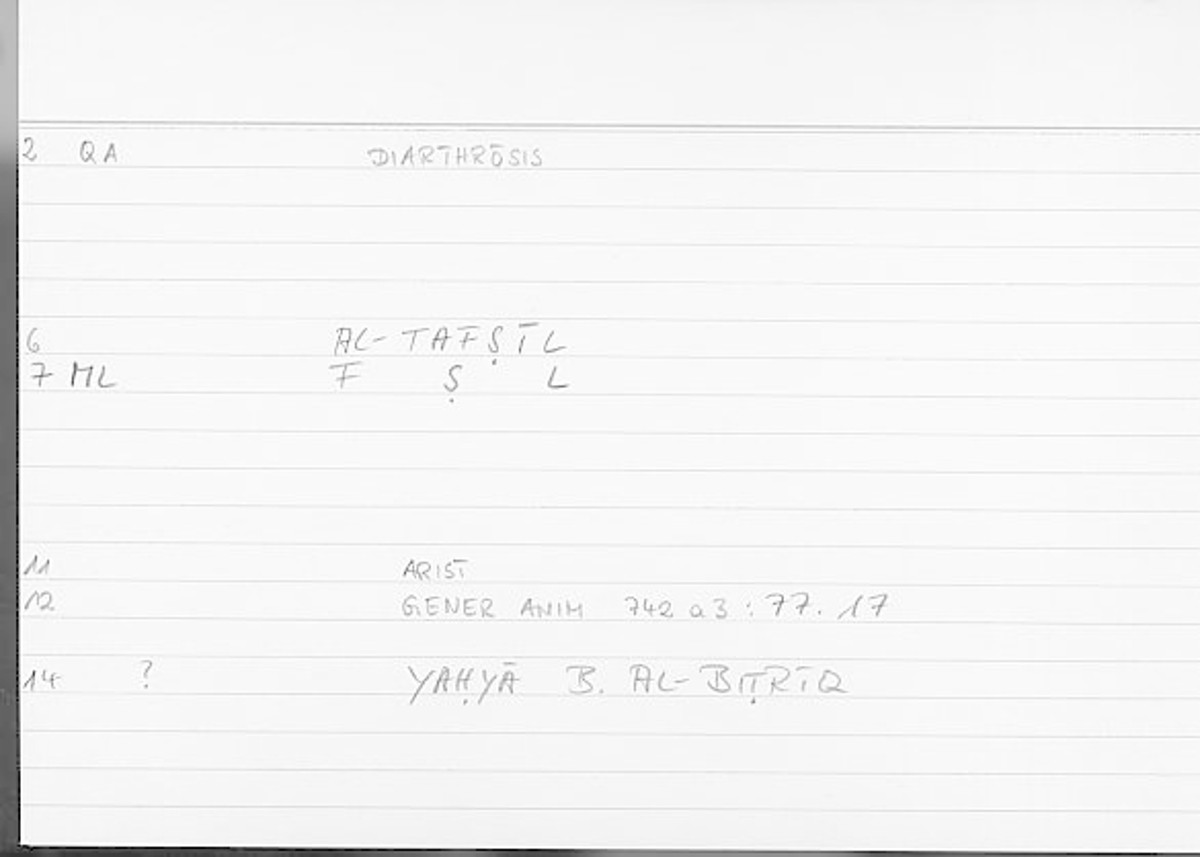 2 QA DIARTHRŌSIS
6 AL-TAFṢĪL
7 ML F Ṣ L
11 ARIST
12 GENER ANIM 742 a 3 : 77. 17
14 ? YAḤYĀ B. AL-BIṬRĪQ